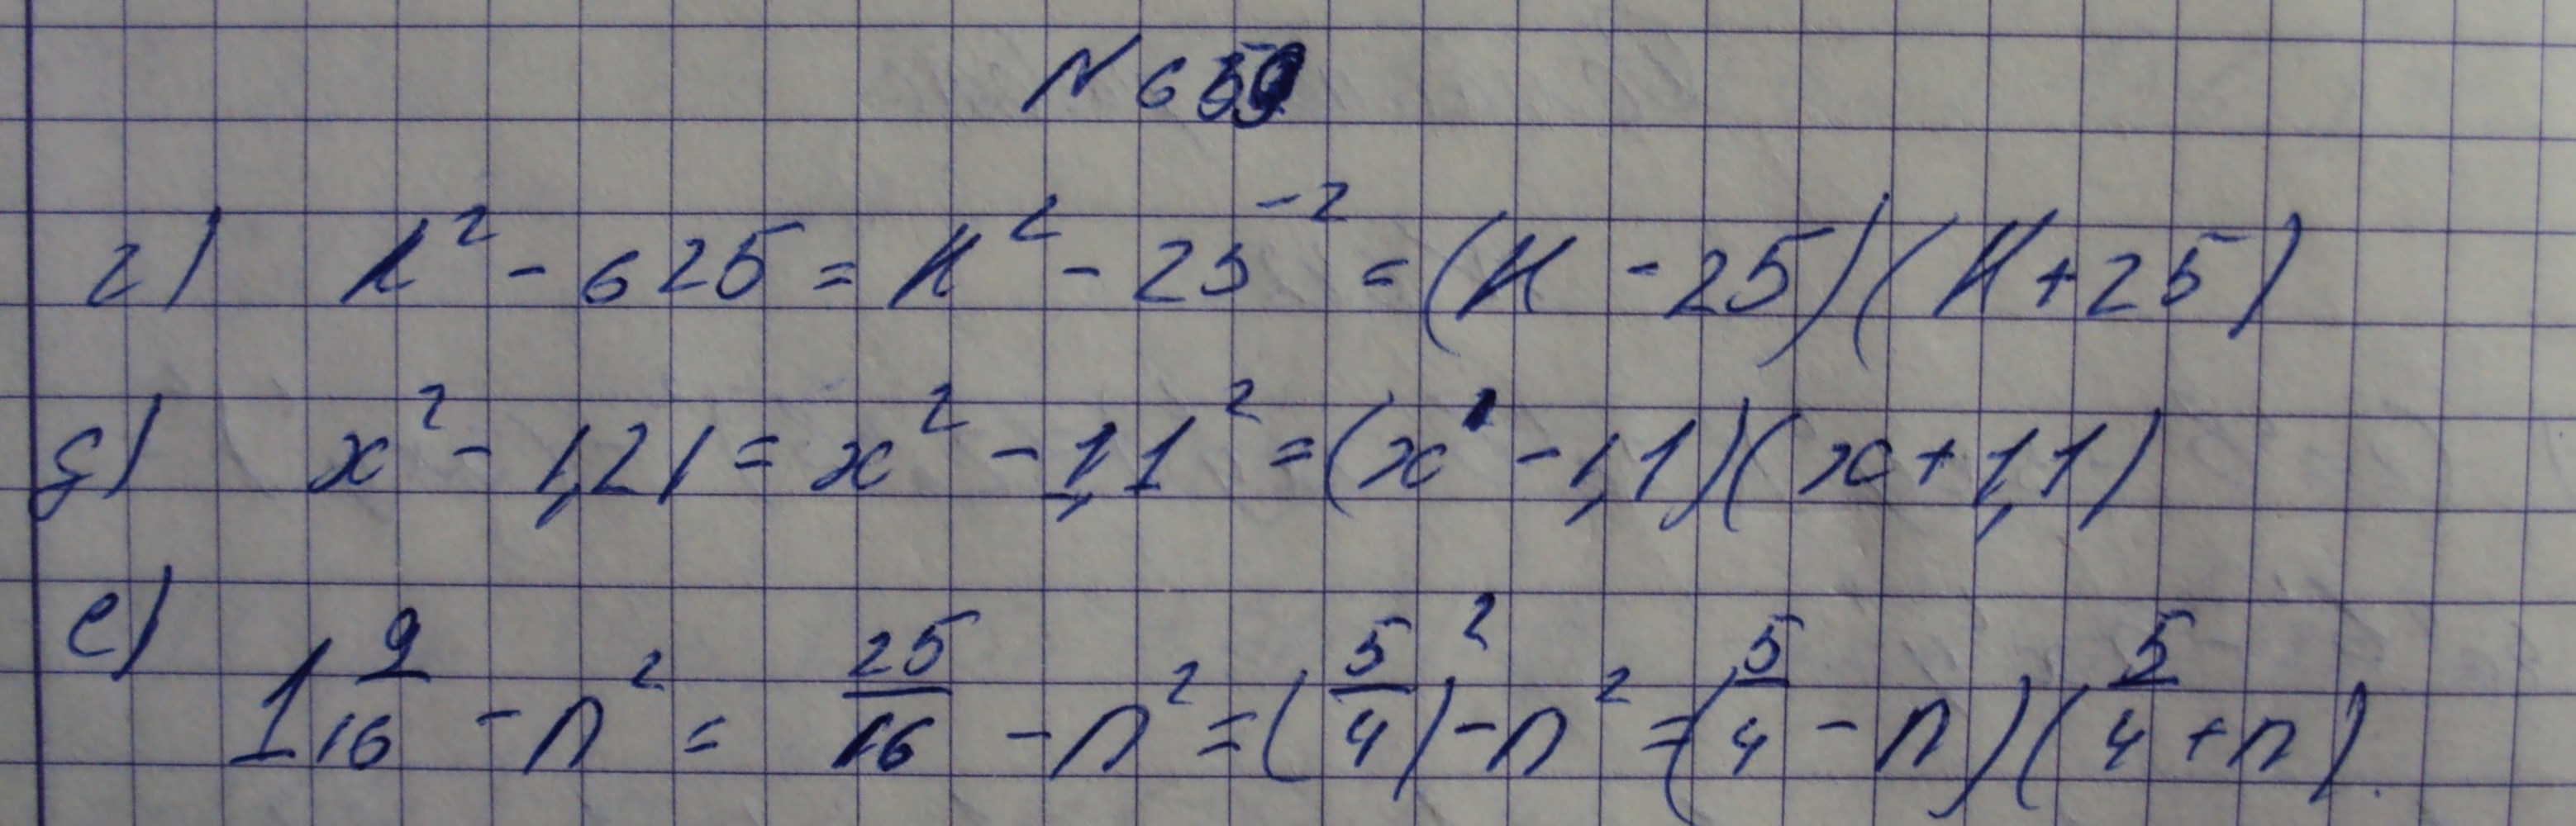 № 659
г) k² - 625 = k² - 25⁻² = (k - 25)(k + 25)
д) x² - 1,21 = x² - 1,1² = (x - 1,1)(x + 1,1)
е) 1 9/16 - n² = 25/16 - n² = (5/4)² - n² = (5/4 - n)(5/4 + n)